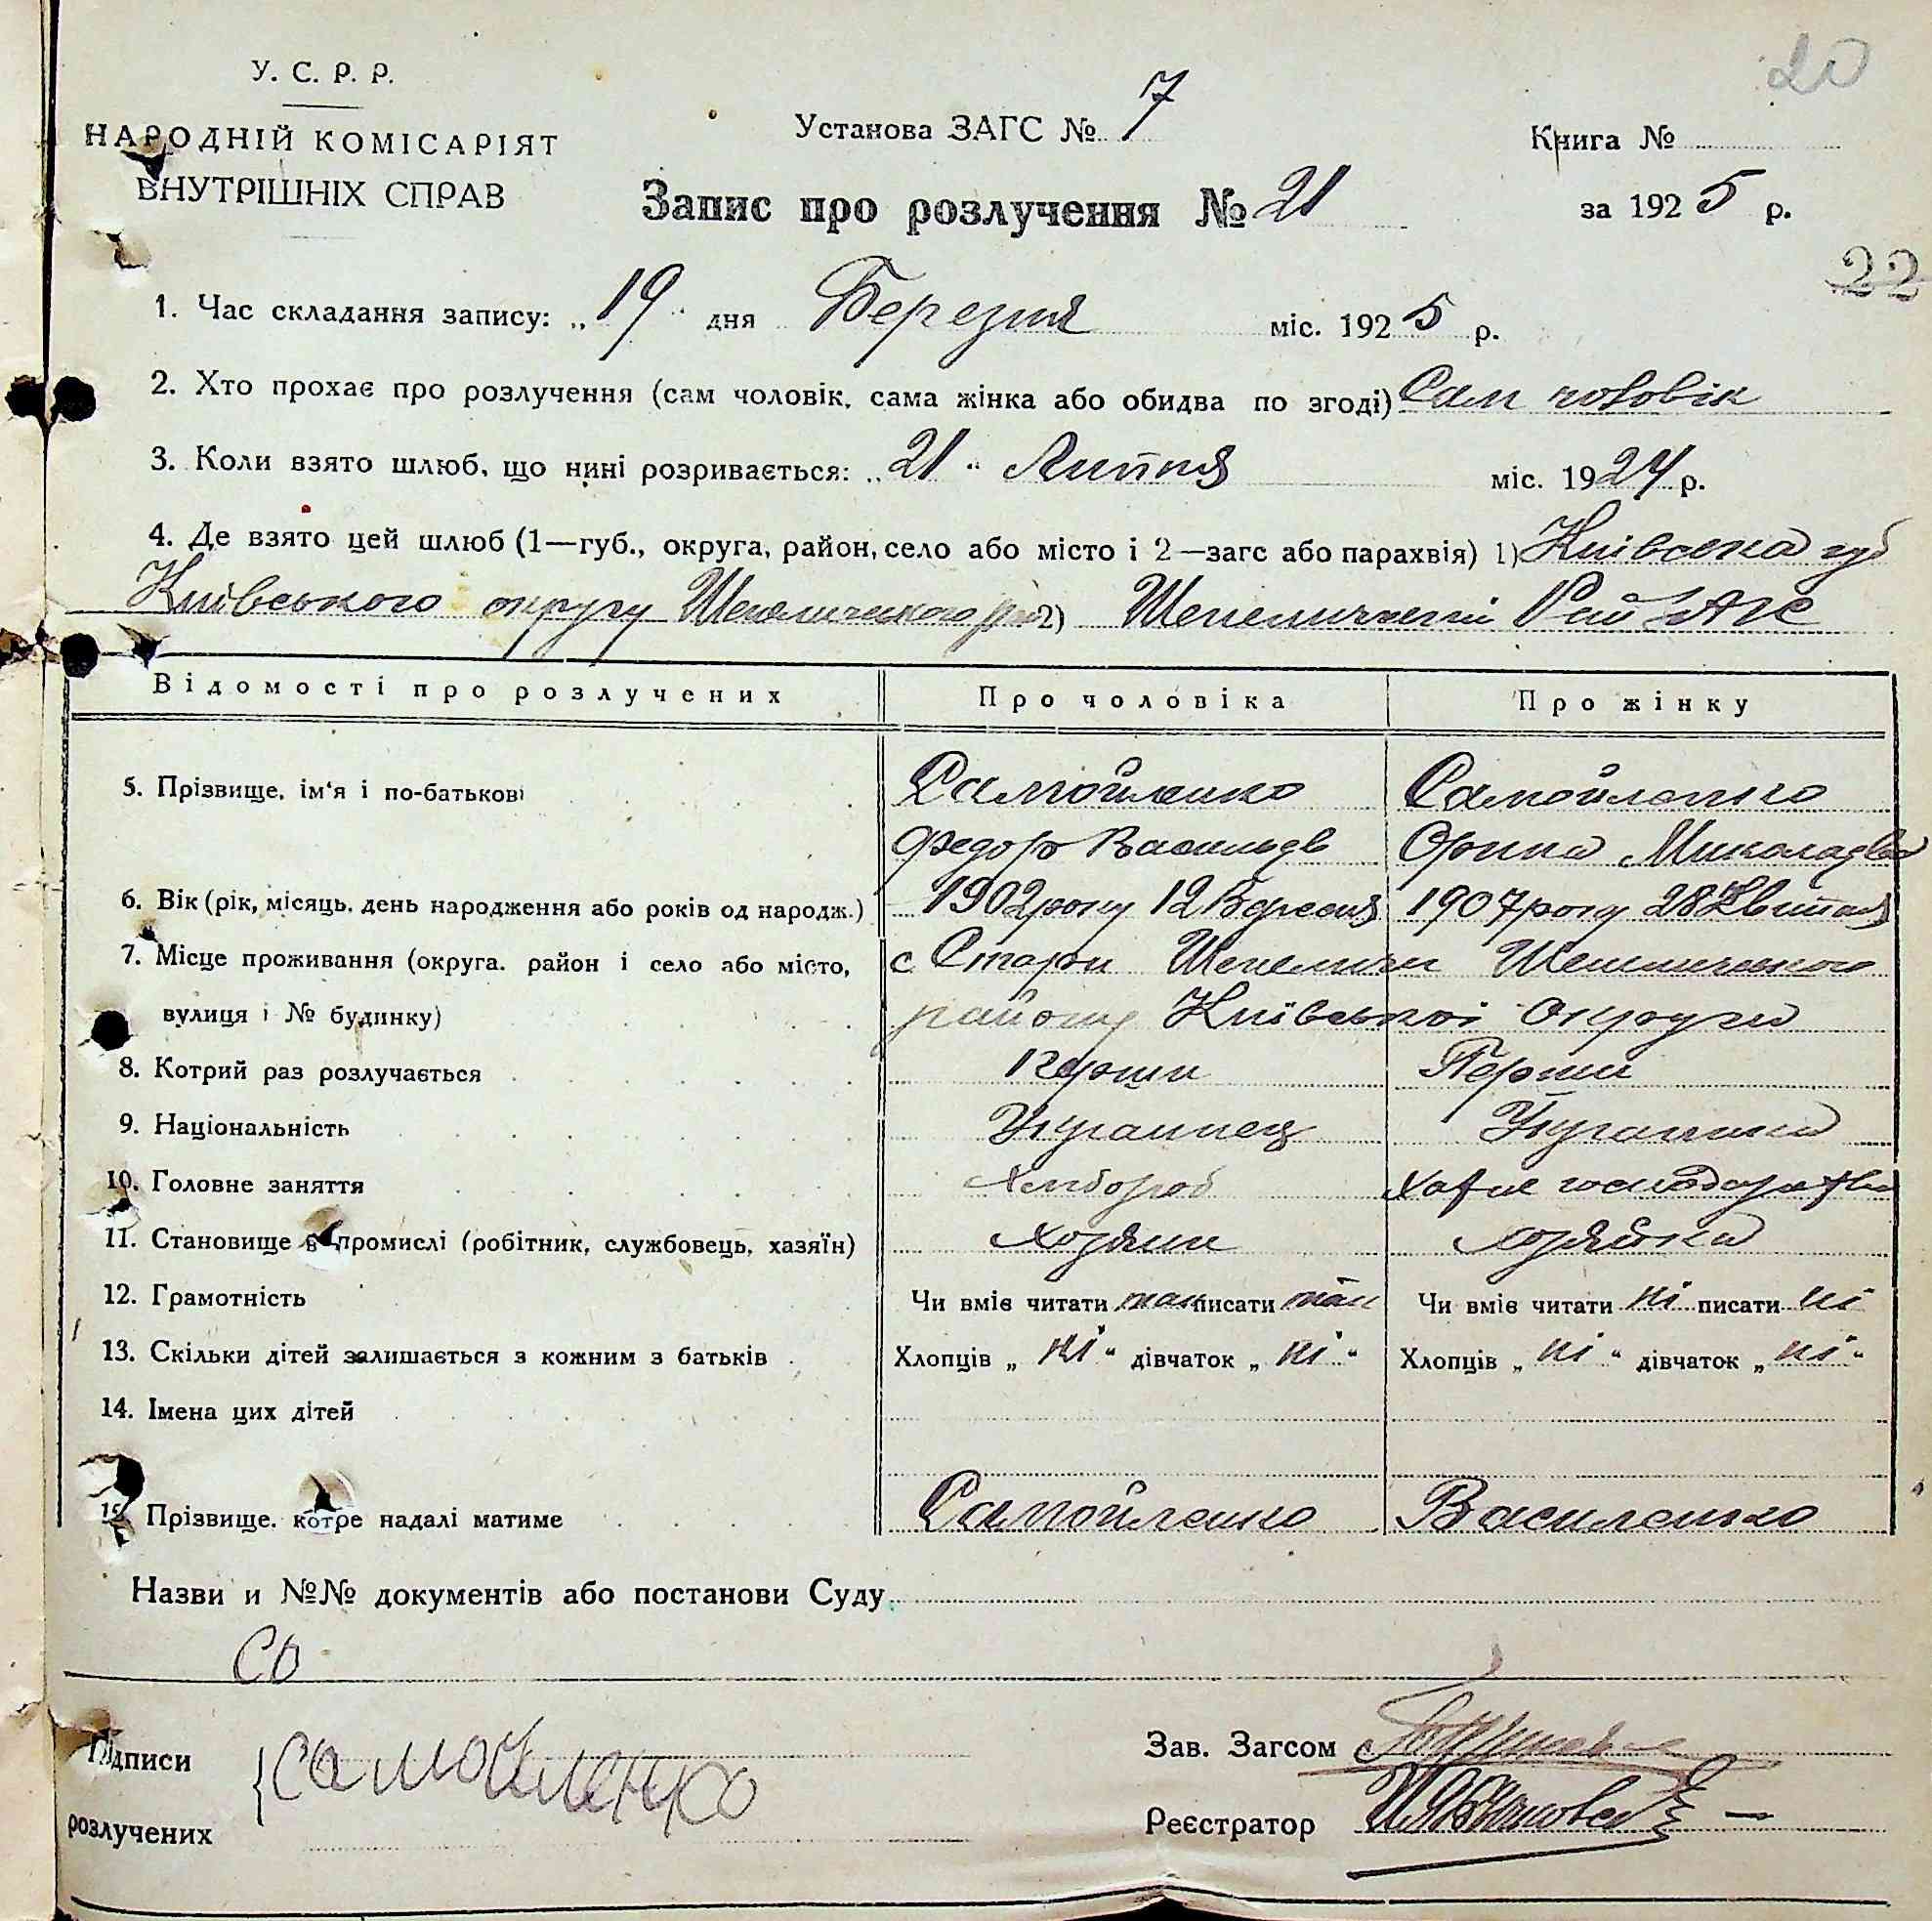 20
У. С. Р. Р.
НАРОДНІЙ КОМІСАРІЯТ
ВНУТРІШНІХ СПРАВ
Установа ЗАГС № 7
Книга №
Запис про розлучення № 21
за 1925 р.
22
1. Час складання запису: „19“ дня Березня міс. 1925 р.
2. Хто прохає про розлучення (сам чоловік, сама жінка або обидва по згоді) Сам чоловік
3. Коли взято шлюб, що нині розривається: „21“ Липня міс. 1924 р.
4. Де взято цей шлюб (1—губ., округа, район, село або місто і 2—загс або парахвія) 1) Київська губ
Київського округу Шепелицького 2) Шепелицкий Рай ЗАГС
Відомості про розлучених Про чоловіка Про жінку
5. Прізвище, ім'я і по-батькові Самойленко Самойленко
Федор Васильєв Орина Миколаєва
6. Вік (рік, місяць, день народження або років од народж.) 1902 року 12 Вересня 1907 року 28 Квітня
7. Місце проживання (округа, район і село або місто, с Стари Шепеличи Шепелицького
вулиця і № будинку) району Київської Округи
8. Котрий раз розлучається Перший Перший
9. Національність Украинец Украинка
10. Головне заняття Хлібороб Хатне господарство
11. Становище в промислі (робітник, службовець, хазяїн) Хозяин хозяйка
12. Грамотність Чи вміє читати так писати так Чи вміє читати ні писати ні
13. Скільки дітей залишається з кожним з батьків Хлопців „ні“ дівчаток „ні“ Хлопців „ні“ дівчаток „ні“
14. Імена цих дітей
15. Прізвище, котре надалі матиме Самойленко Василенко
Назви и №№ документів або постанови Суду
Со
Підписи Самойленко
розлучених
Зав. Загсом
Реєстратор